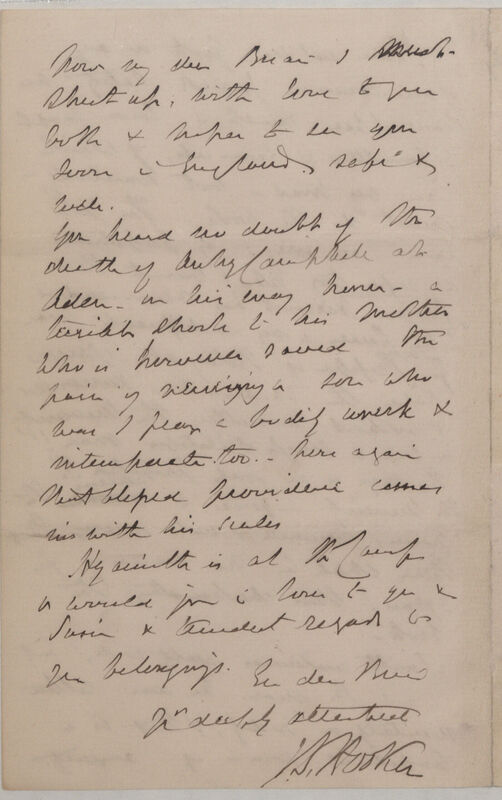 Now my dear Brian I must
shut up, with love to you
both & hopes to see you
soon in England. safe &
well.
You heard no doubt of the
death of Campbell at
Aden - on his way home - a
terrible shock to his Mother
who is however saved the
pain of receiving a son who
was I fear a bodily wreck &
intemperate too. - here again
that blessed providence comes
in with his scales
Hyacinth is at the Camp
or would join in love to you &
& tenderest regards to
yr belongings. Ev dear Brian
Yrs. attached
J.D. Hooker